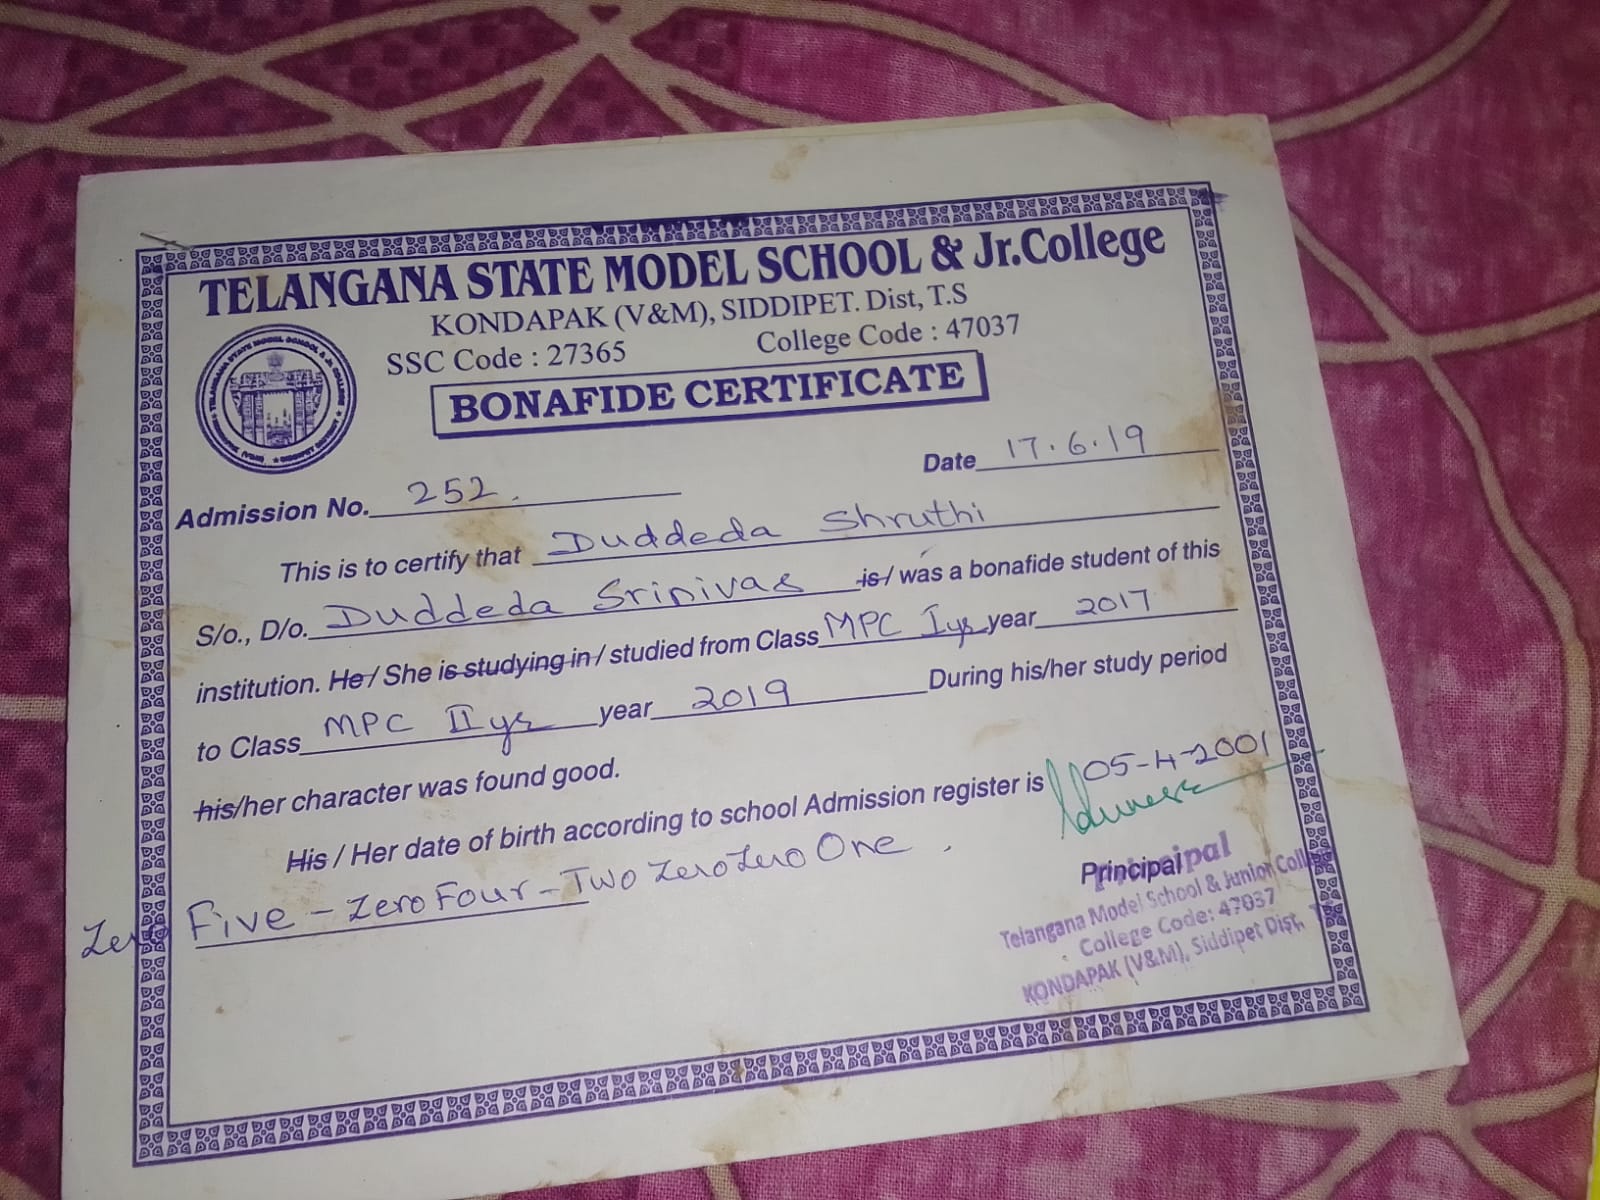 TELANGANA STATE MODEL SCHOOL & Jr.College
KONDAPAK (V&M), SIDDIPET. Dist, T.S
SSC Code : 27365 College Code : 47037
BONAFIDE CERTIFICATE
TELANGANA STATE MODEL SCHOOL & JR. COLLEGE
Date 17.6.19
Admission No. 252.
This is to certify that Duddeda Shruthi
S/o., D/o. Duddeda Srinivas is/ was a bonafide student of this
institution. He/ She is studying in/ studied from Class MPC I yr year 2017
to Class MPC II yr year 2019 During his/her study period
his/her character was found good.
His / Her date of birth according to school Admission register is 05-4-2001
Zero Five - Zero Four - Two Zero Zero One.
Principal
Principal
Telangana Model School & Junior College
College Code: 47037
KONDAPAK (V&M), Siddipet Dist,